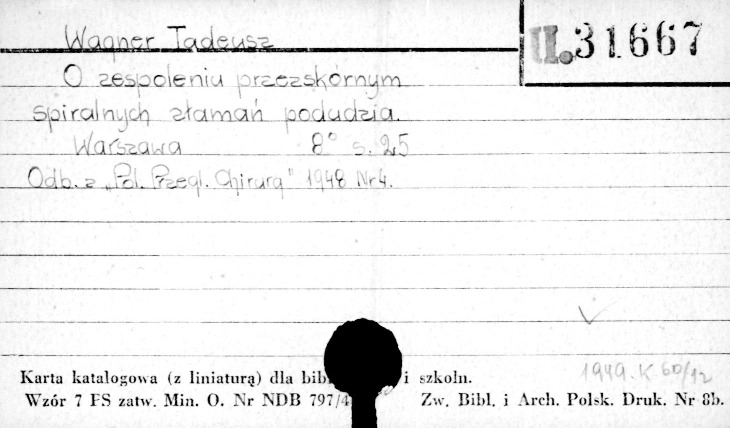 Wagner Tadeusz
II. 31667
O zespoleniu przezskórnym
spiralnych złamań podudzia.
Warszawa 8° s. 25
Odb. z „Pol. Przegl. Chirurg" 1948 Nr 4.
1949. K 60/12
Karta katalogowa (z liniaturą) dla bibl i szkoln.
Wzór 7 FS zatw. Min. O. Nr NDB 797/4 Zw. Bibl. i Arch. Polsk. Druk. Nr 8b.